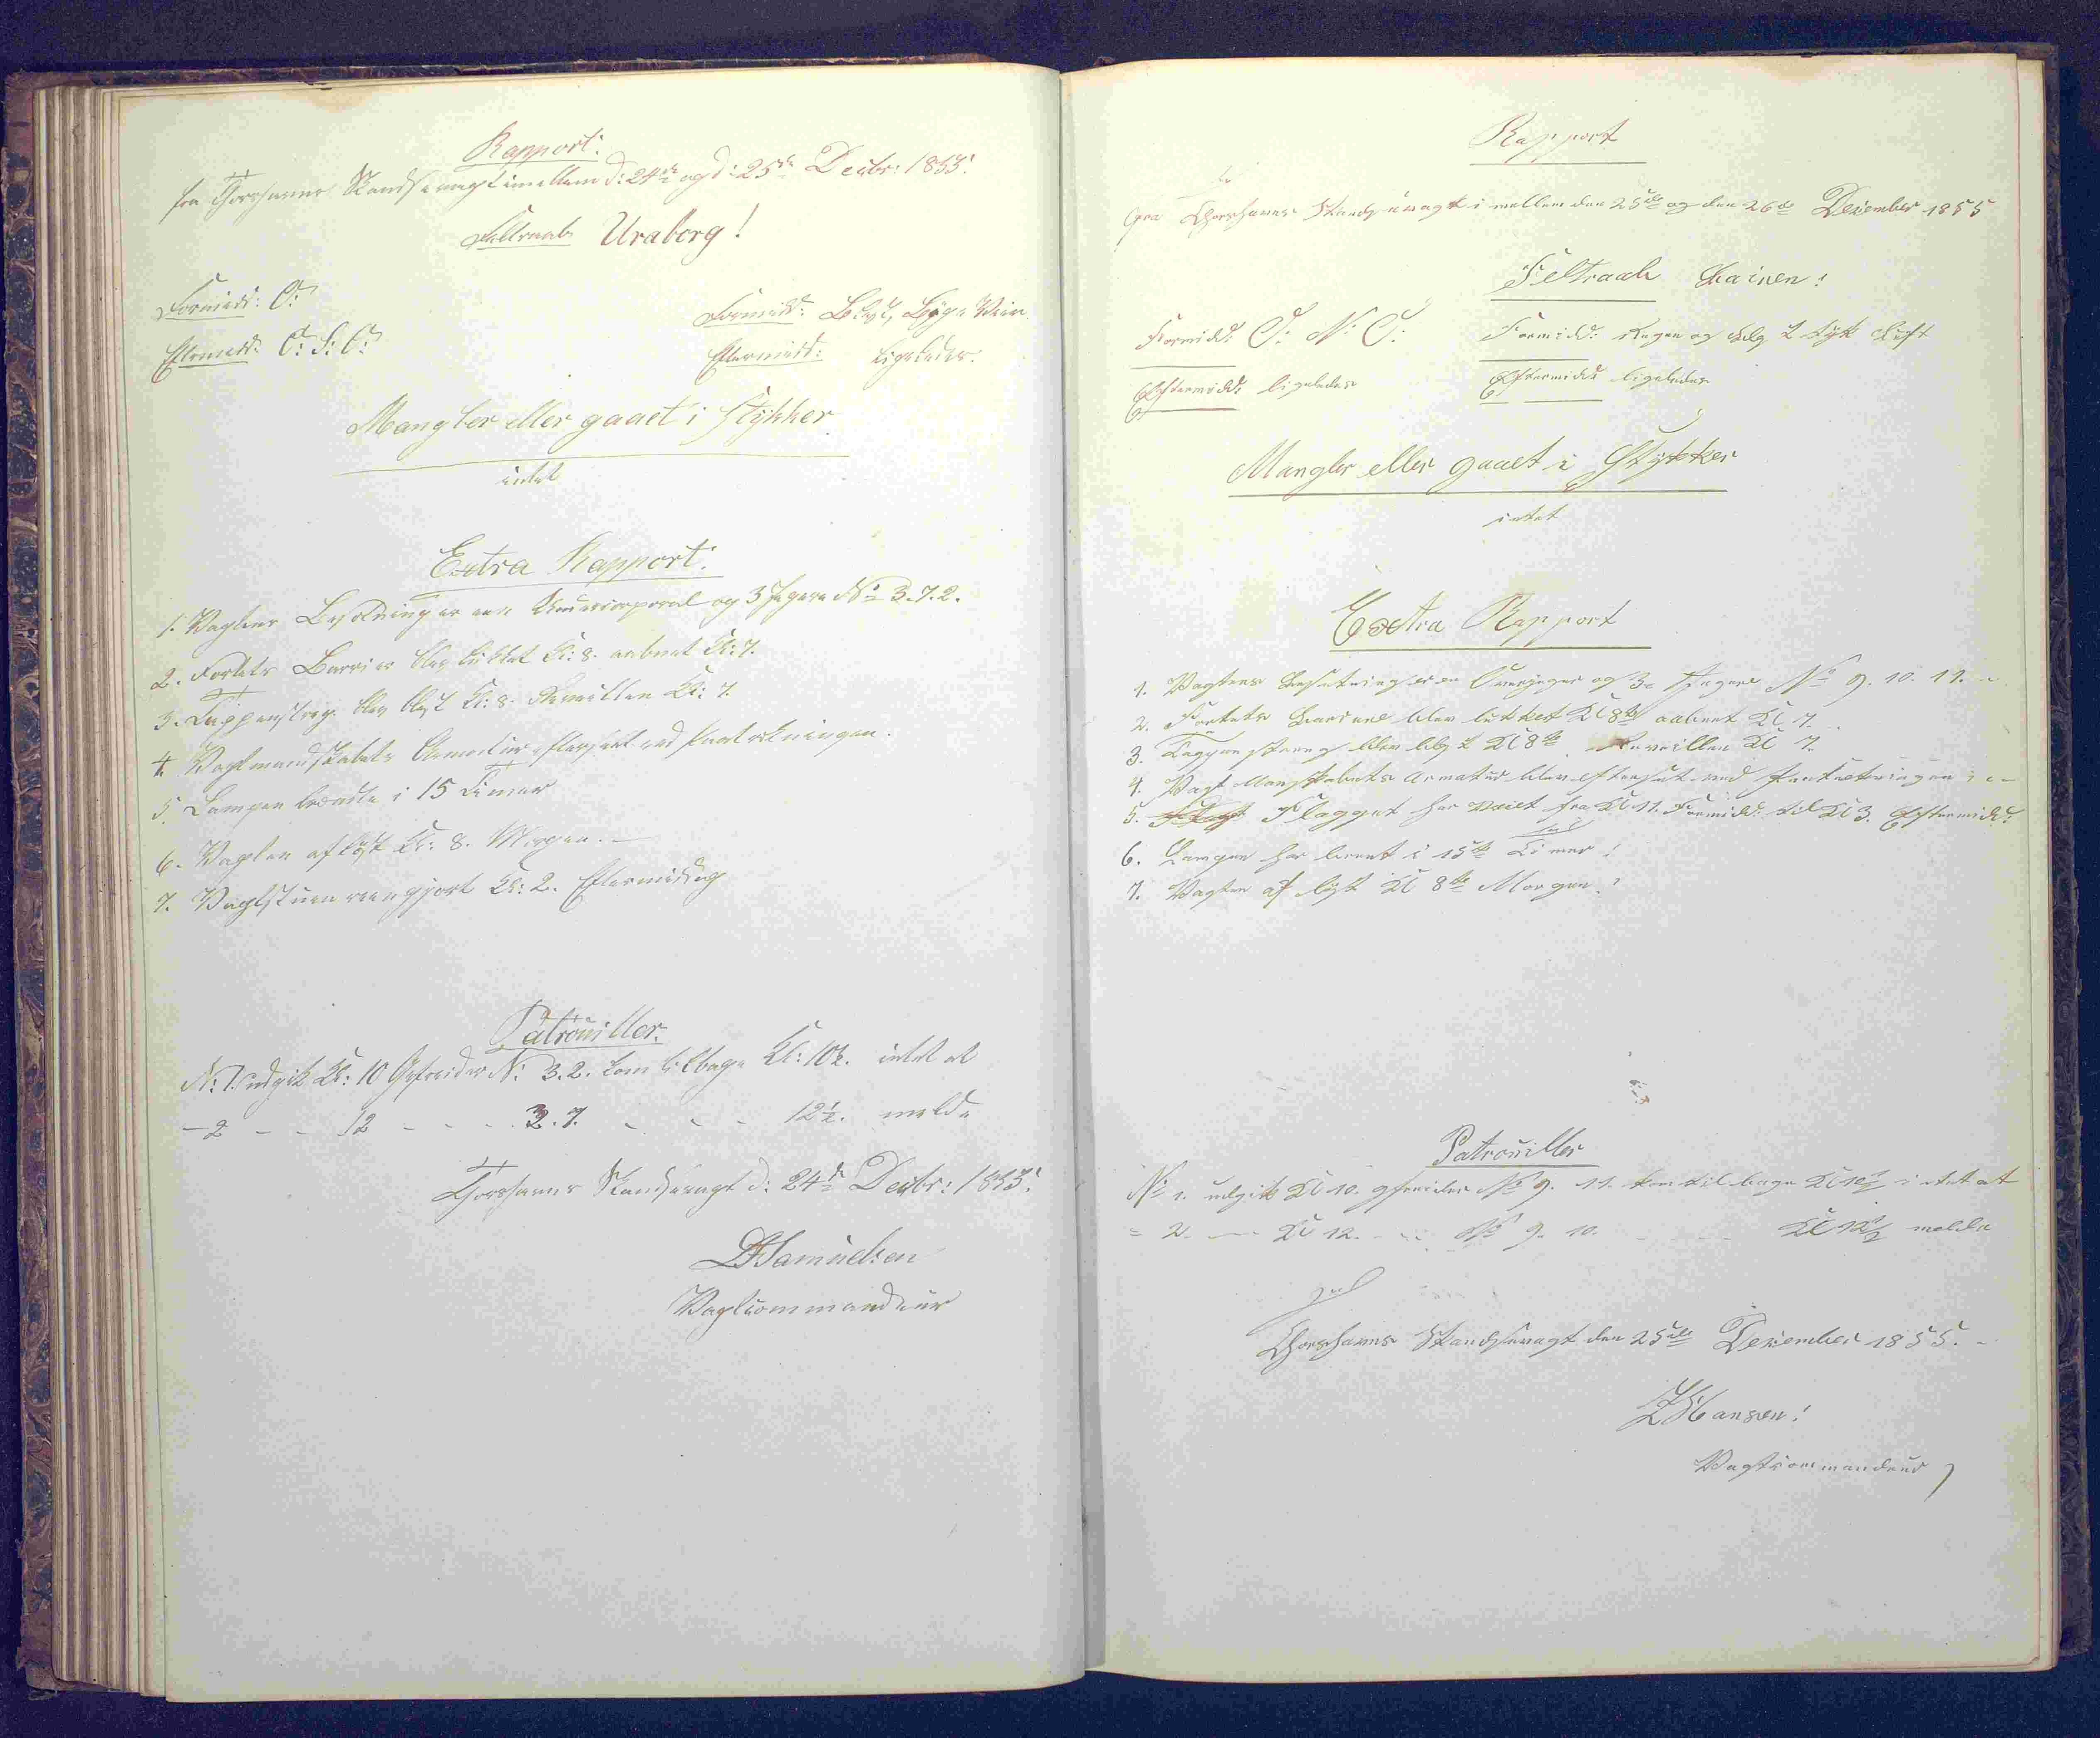 Rapport:
fra Thorshavns Skandsevagt imellem d: 24de og d: 25de Decbr: 1855.
Feltraab Uraborg!
Formidd: O:
Formidd: Blæst, Byge Veir.
Eftermidd: O: S: O:
Eftermidd: ligeledes.
Mangler eller gaaet i Stykker
intet
Extra Rapport:
1. Vagtens Besætning er een Undercorporal og 3 Jægere No 3.7.2.
2. Fortets Barrier blev lukket Kl: 8. aabnet Kl: 7.
3. Tappenstreg blev blæst Kl: 8. Reveillen Kl: 7.
4. Vagtmandskabets Armatur efterseet ved Fratrækningen.
5. Lampen brændte i 15 Timer
6. Vagten afløst Kl: 8. Morgen.
7. Vagtstuen reengjort Kl: 2. Eftermiddag
Patrouiller.
N: 1. udgik Kl: 10 Gefreider N: 3.2. kom tilbage Kl: 10½. intet at
- 2 - - 12 - - - 3.7. - - - 12½. melde
Thorshavns Skandsevagt d: 24de Decbr: 1855.
Samuelsen
Vagtcommandeur
Rapport
fra Thorshavns Skandsevagt i mellem den 25de og den 26de December 1855
Feltraab Cainen!
Formidd: O: N: O:
Formidd: Regen og Tyk Luft
Eftermidd: ligeledes
Eftermidd: ligeledes
Mangler eller gaaet i Stykker
intet
Extra Rapport
1. Vagtens Besætning er en Overjæger og 3 Jægere No 9. 10. 11.
2. Fortets Bariere blev lukket Kl 8te aabnet Kl 7.
3. Tappenstreg blev blæst Kl 8te Reveillen Kl 7.
4. Vagt Manskabets Armatur blev efterset ved
5. Flagget har vaiet fra Kl 11. Formidd: til Kl 3. Eftermidd:
6. Lampen har brent i 15 Timer!
7. Vagten afløst Kl 8te Morgen!
Patrouiller
No 1. udgik Kl 10. gfreider No 9. 11. kom tilbage Kl 10½ intet at
= 2. — Kl 12. - - No 9. 10. - - Kl 12½ melde
Thorshavns Skandsevagt den 25de December 1855.
Hansen!
Vagtcommandeur